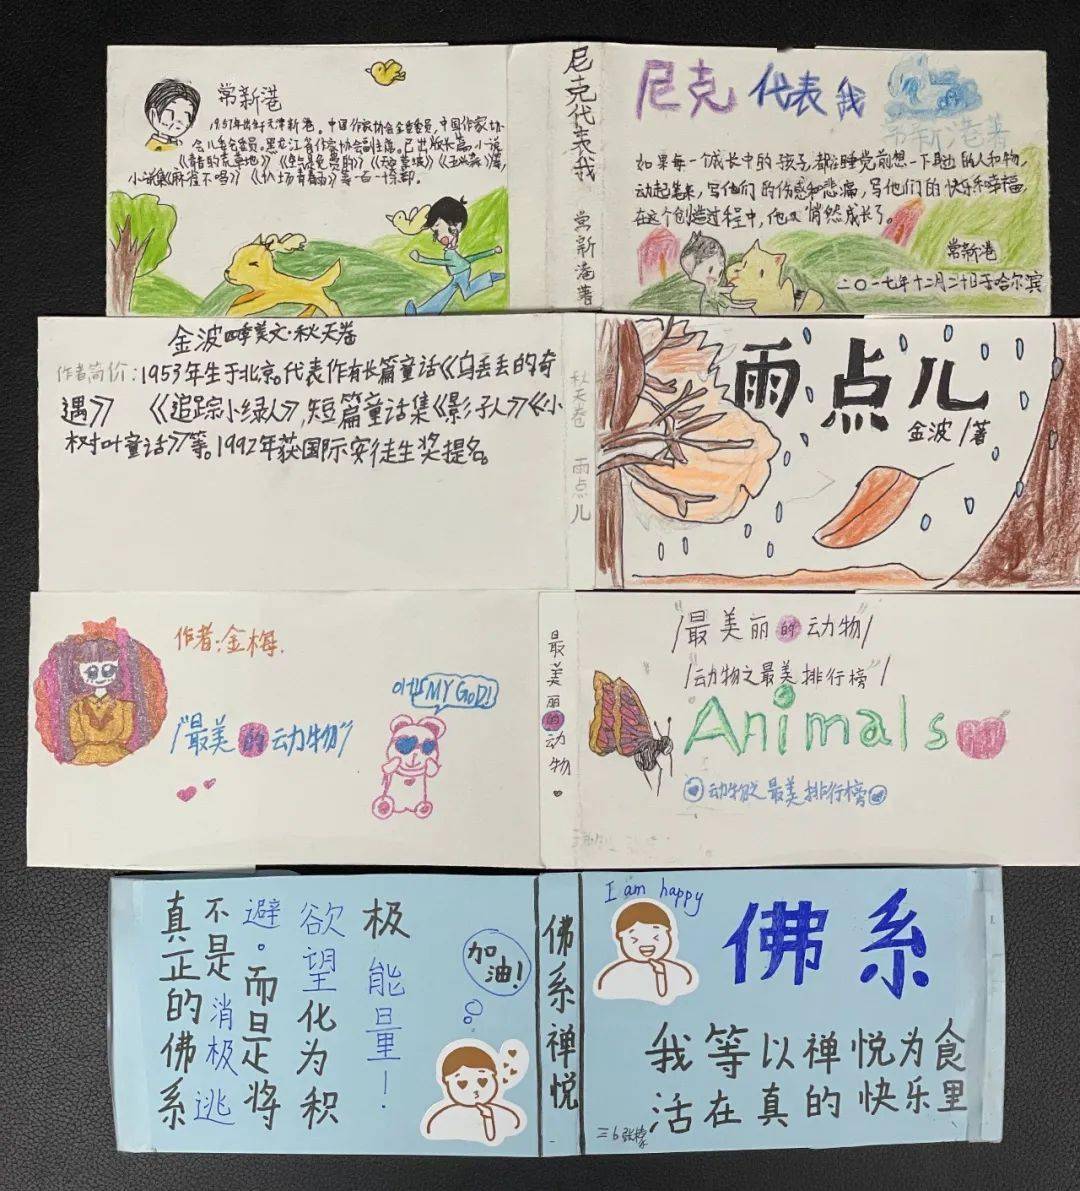 常新港
1957年出生于天津新港。中国作家协会全委委员,中国作家协
会儿委会委员。黑龙江省作家协会副主席。已出版长篇小说
《青春的荒草地》《
小说集《麻雀不唱》《
尼克代表我 常新港著
尼克代表我
常新港著
如果每一个成长中的孩子,都在睡觉前想一下身边的人和物,
动起笔来,写他们的伤感和悲痛,写他们的快乐和幸福,
在这个创造过程中,他又悄然成长了。
常新港
二〇一七年十二月二十日于哈尔滨
金波四季美文·秋天卷
作者简价:1953年生于北京。代表作有长篇童话《乌丢丢的奇
遇》 《追踪小绿人》,短篇童话集《影子人》《小
树叶童话》等。1992年获国际安徒生奖提名。
秋天卷 雨点儿
雨点儿
金波/著
作者:金梅.
"最美的动物"
OH MY GOD!
最美丽的动物
"最美丽的动物"
"动物之最美排行榜"
Animals
动物之最美排行榜
真正的佛系
不是消极逃
避。而是将
欲望化为积
极能量!
加油!
佛系禅悦
I am happy
佛系
我等以禅悦为食
活在真的快乐里
三6张